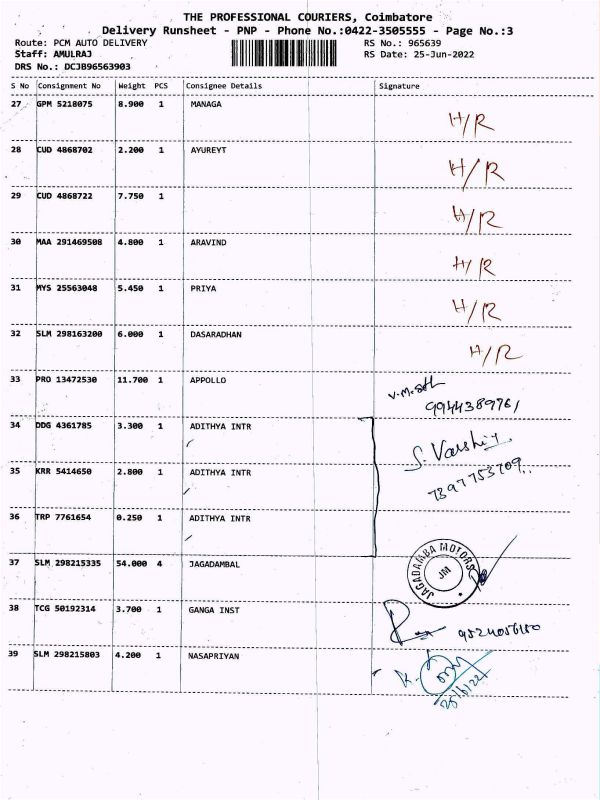 THE PROFESSIONAL COURIERS, Coimbatore
Delivery Runsheet - PNP - Phone No.:0422-3505555 - Page No.:3
Route: PCM AUTO DELIVERY RS No.: 965639
Staff: AMULRAJ RS Date: 25-Jun-2022
DRS No.: DCJB96563903
S No Consignment No Weight PCS Consignee Details Signature
27 GPM 5218075 8.900 1 MANAGA
H/R
28 CUD 4868702 2.200 1 AYUREYT
H/R
29 CUD 4868722 7.750 1
H/R
30 MAA 291469508 4.800 1 ARAVIND
H/R
31 MYS 25563048 5.450 1 PRIYA
H/R
32 SLM 298163200 6.000 1 DASARADHAN
H/R
33 PRO 13472530 11.700 1 APPOLLO
9944389761
34 DDG 4361785 3.300 1 ADITHYA INTR
35 KRR 5414650 2.800 1 ADITHYA INTR
7397753709
36 TRP 7761654 0.250 1 ADITHYA INTR
37 SLM 298215335 54.000 4 JAGADAMBAL
JAGADAMBA MOTORS
JM
38 TCG 50192314 3.700 1 GANGA INST
39 SLM 298215803 4.200 1 NASAPRIYAN
25/6/22